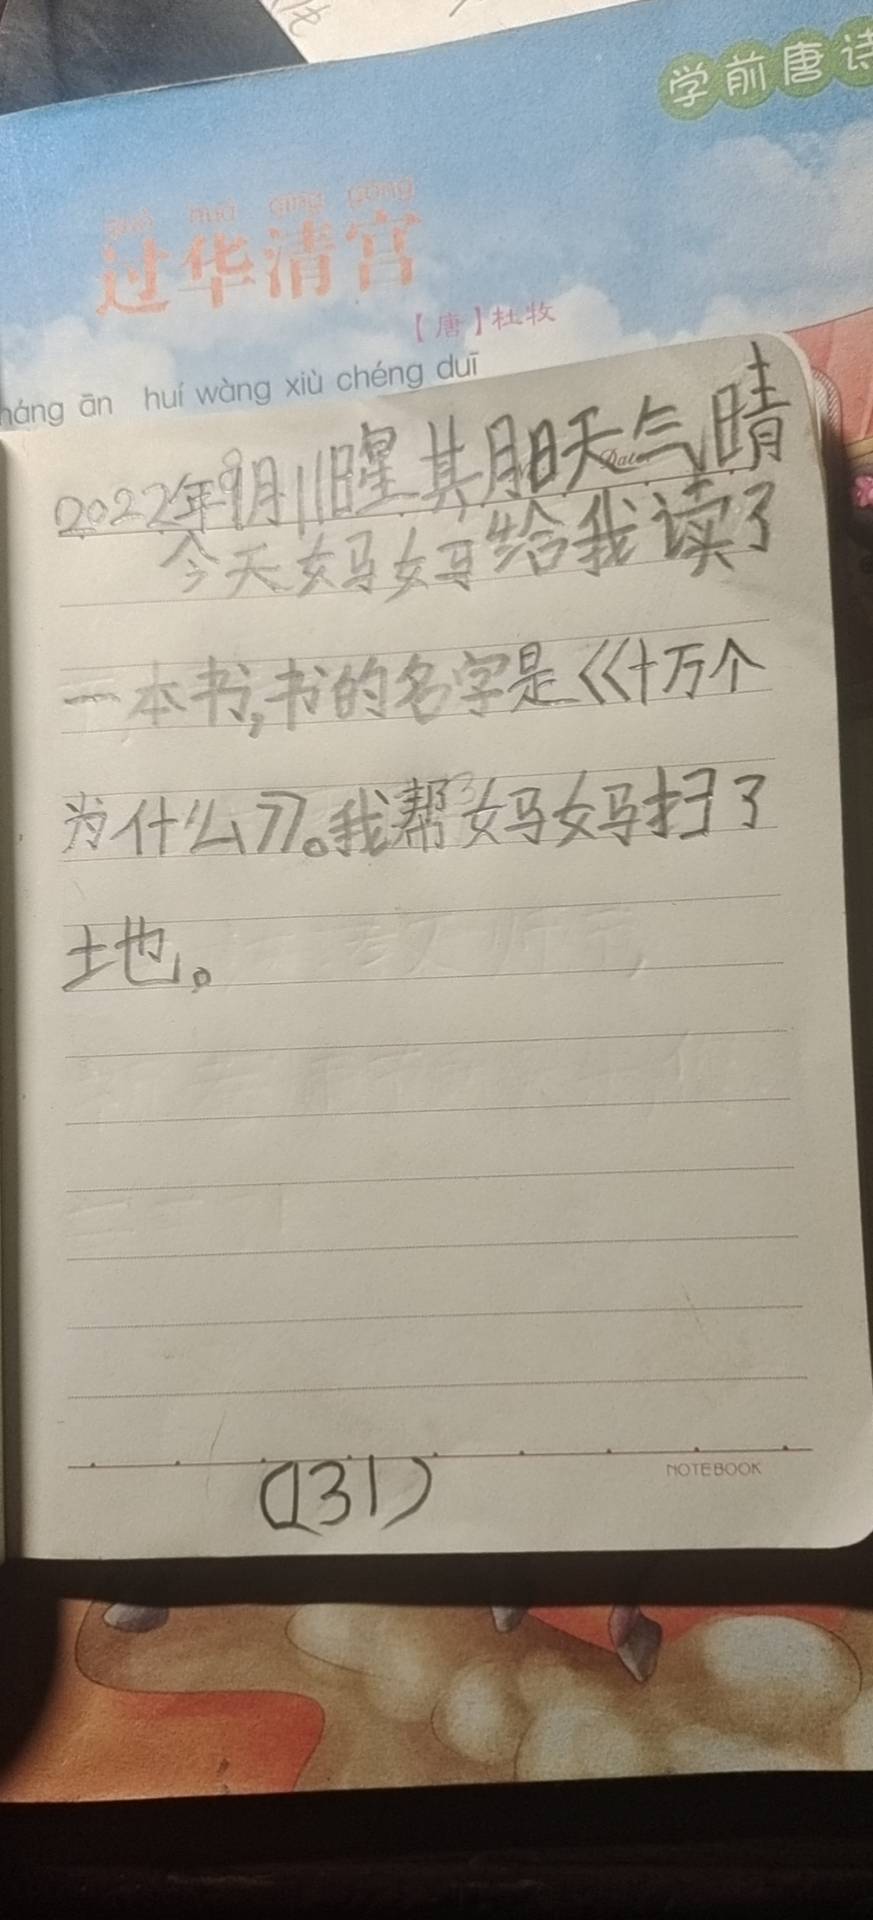 学前唐诗
guò huá qīng gōng
过华清宫
【唐】杜牧
háng ān huí wàng xiù chéng duī
Date
2022年9月11日星其月日天气晴
今天妈妈给我读了
一本书,书的名字是《十万个
为什么》。我帮妈妈扫了
土地。
NOTEBOOK
(131)